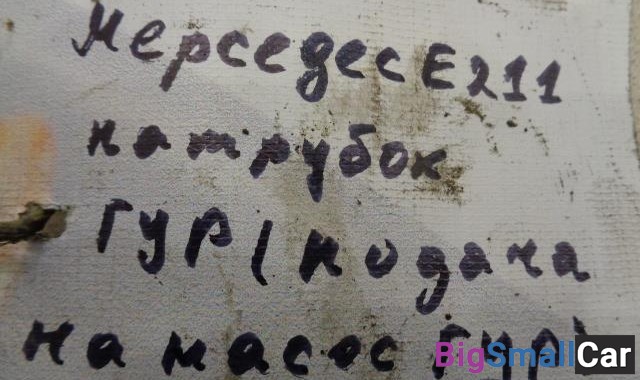 Мерседес Е211
патрубок
ГУР (подача
на насос ГУР)
BigSmallCar